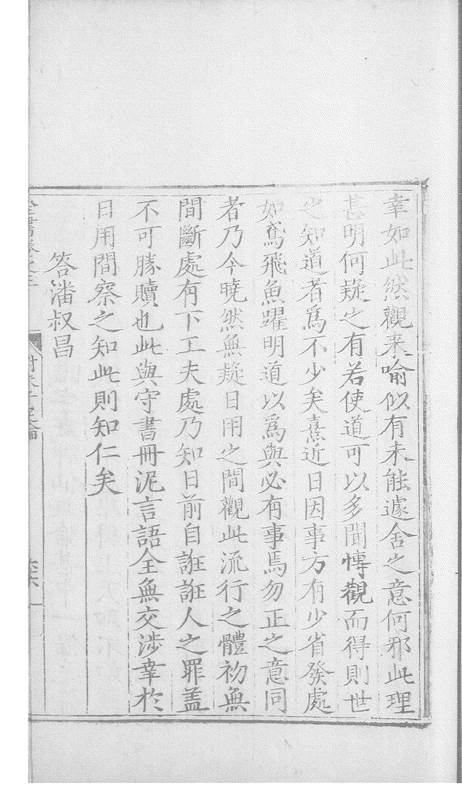 幸如此然觀来喻似有未能遽舍之意何邪此理
甚明何疑之有若使道可以多聞博觀而得則世
之知道者爲不少矣熹近日因事方有少省發處
如鳶飛魚躍明道以爲與必有事焉勿正之意同
者乃今曉然無疑日用之間觀此流行之體初無
間斷處有下工夫處乃知日前自誑誑人之罪盖
不可勝贖也此與守書冊泥言語全無交涉幸於
日用間察之知此則知仁矣
答潘叔昌